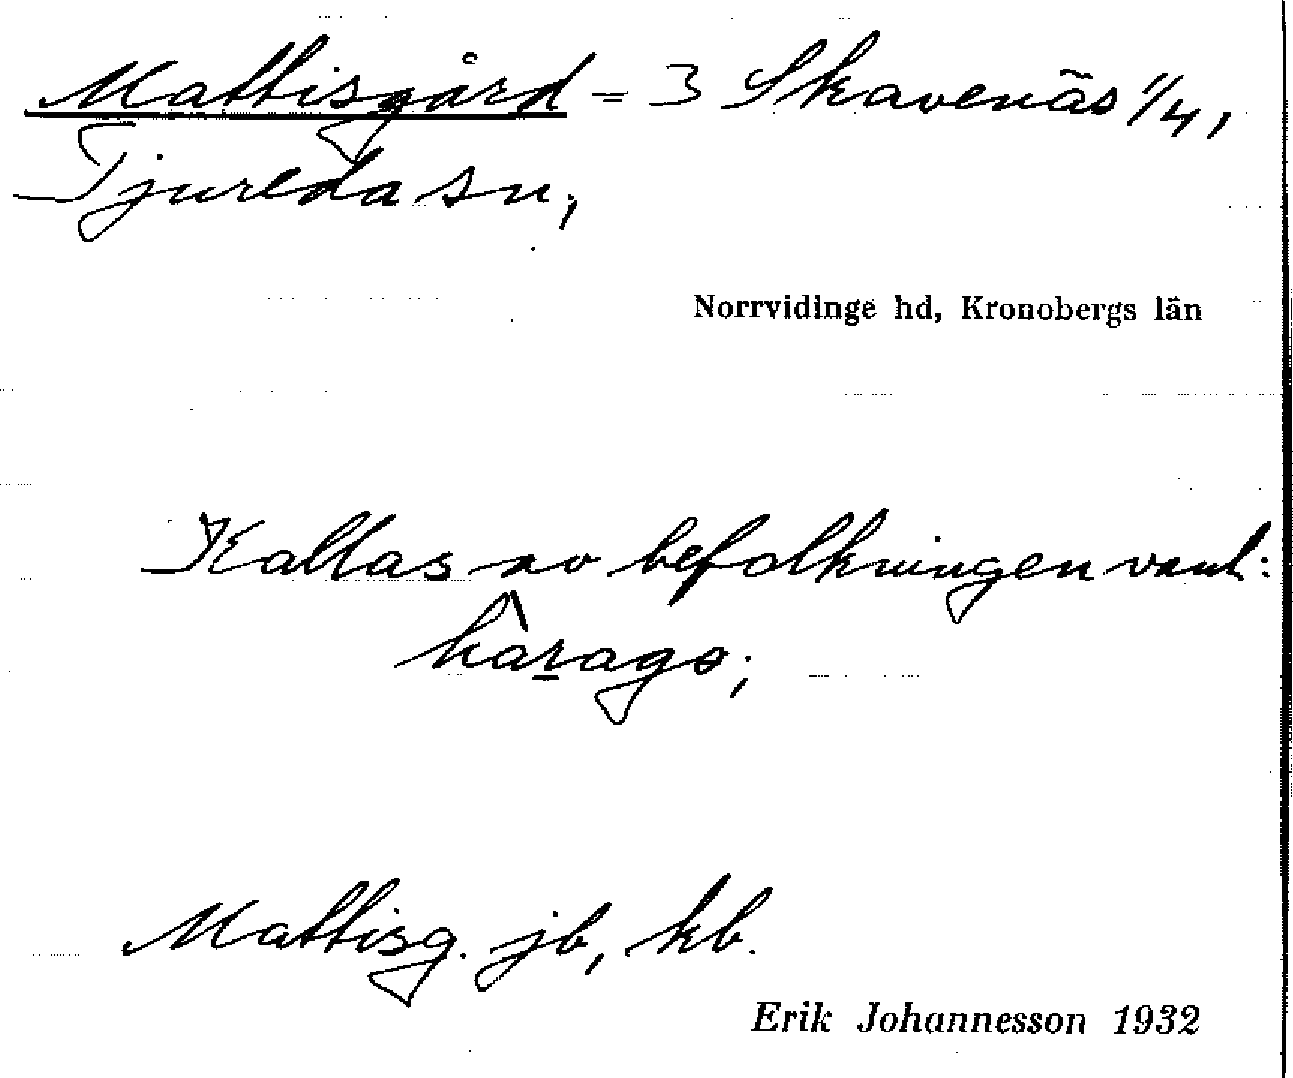 Mattisgård = 3 Skavenäs 1/4,
Tjureda sn,
Norrvidinge hd, Kronobergs län
Kallas av befolkningen vanl:
hâragȯ;
Mattisg. jb, kb.
Erik Johannesson 1932